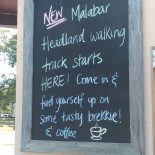 NEW Malabar
Headland walking
track starts
HERE! Come in &
fuel yourself up on
some tasty brekkie!
& coffee